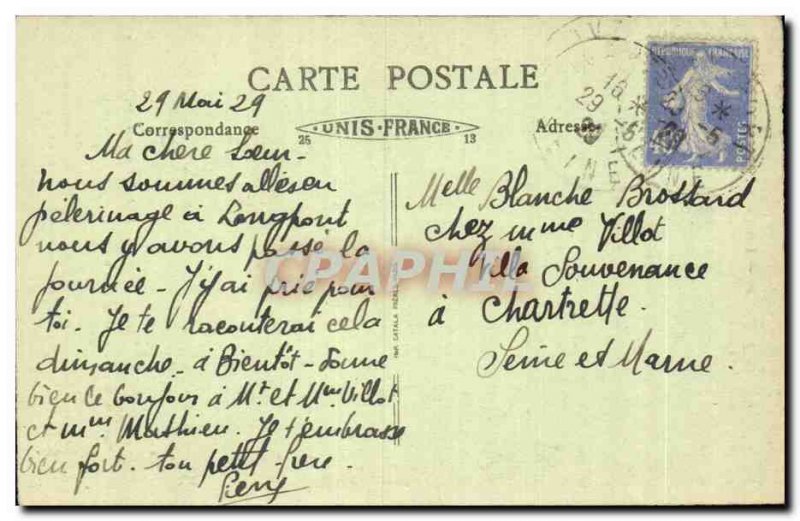 CARTE POSTALE
29 Mai 29
Correspondance
UNIS-FRANCE
25
13
Adresse
Ma chère Sœur -
nous sommes allés en
pèlerinage à Longpont
nous y avons passé la
journée - J'y ai prié pour
toi. Je te raconterai cela
dimanche - à Bientôt - Donne
bien le bonjour à Mr et Mme Villot
et mme Mathieu. Je t'embrasse
bien fort. ton petit frere.
Melle Blanche Brossard
chez mme Villot
Villa Souvenance
à Chartrette.
Seine et Marne.
REPUBLIQUE FRANÇAISE
POSTES
CPAPHIL.COM